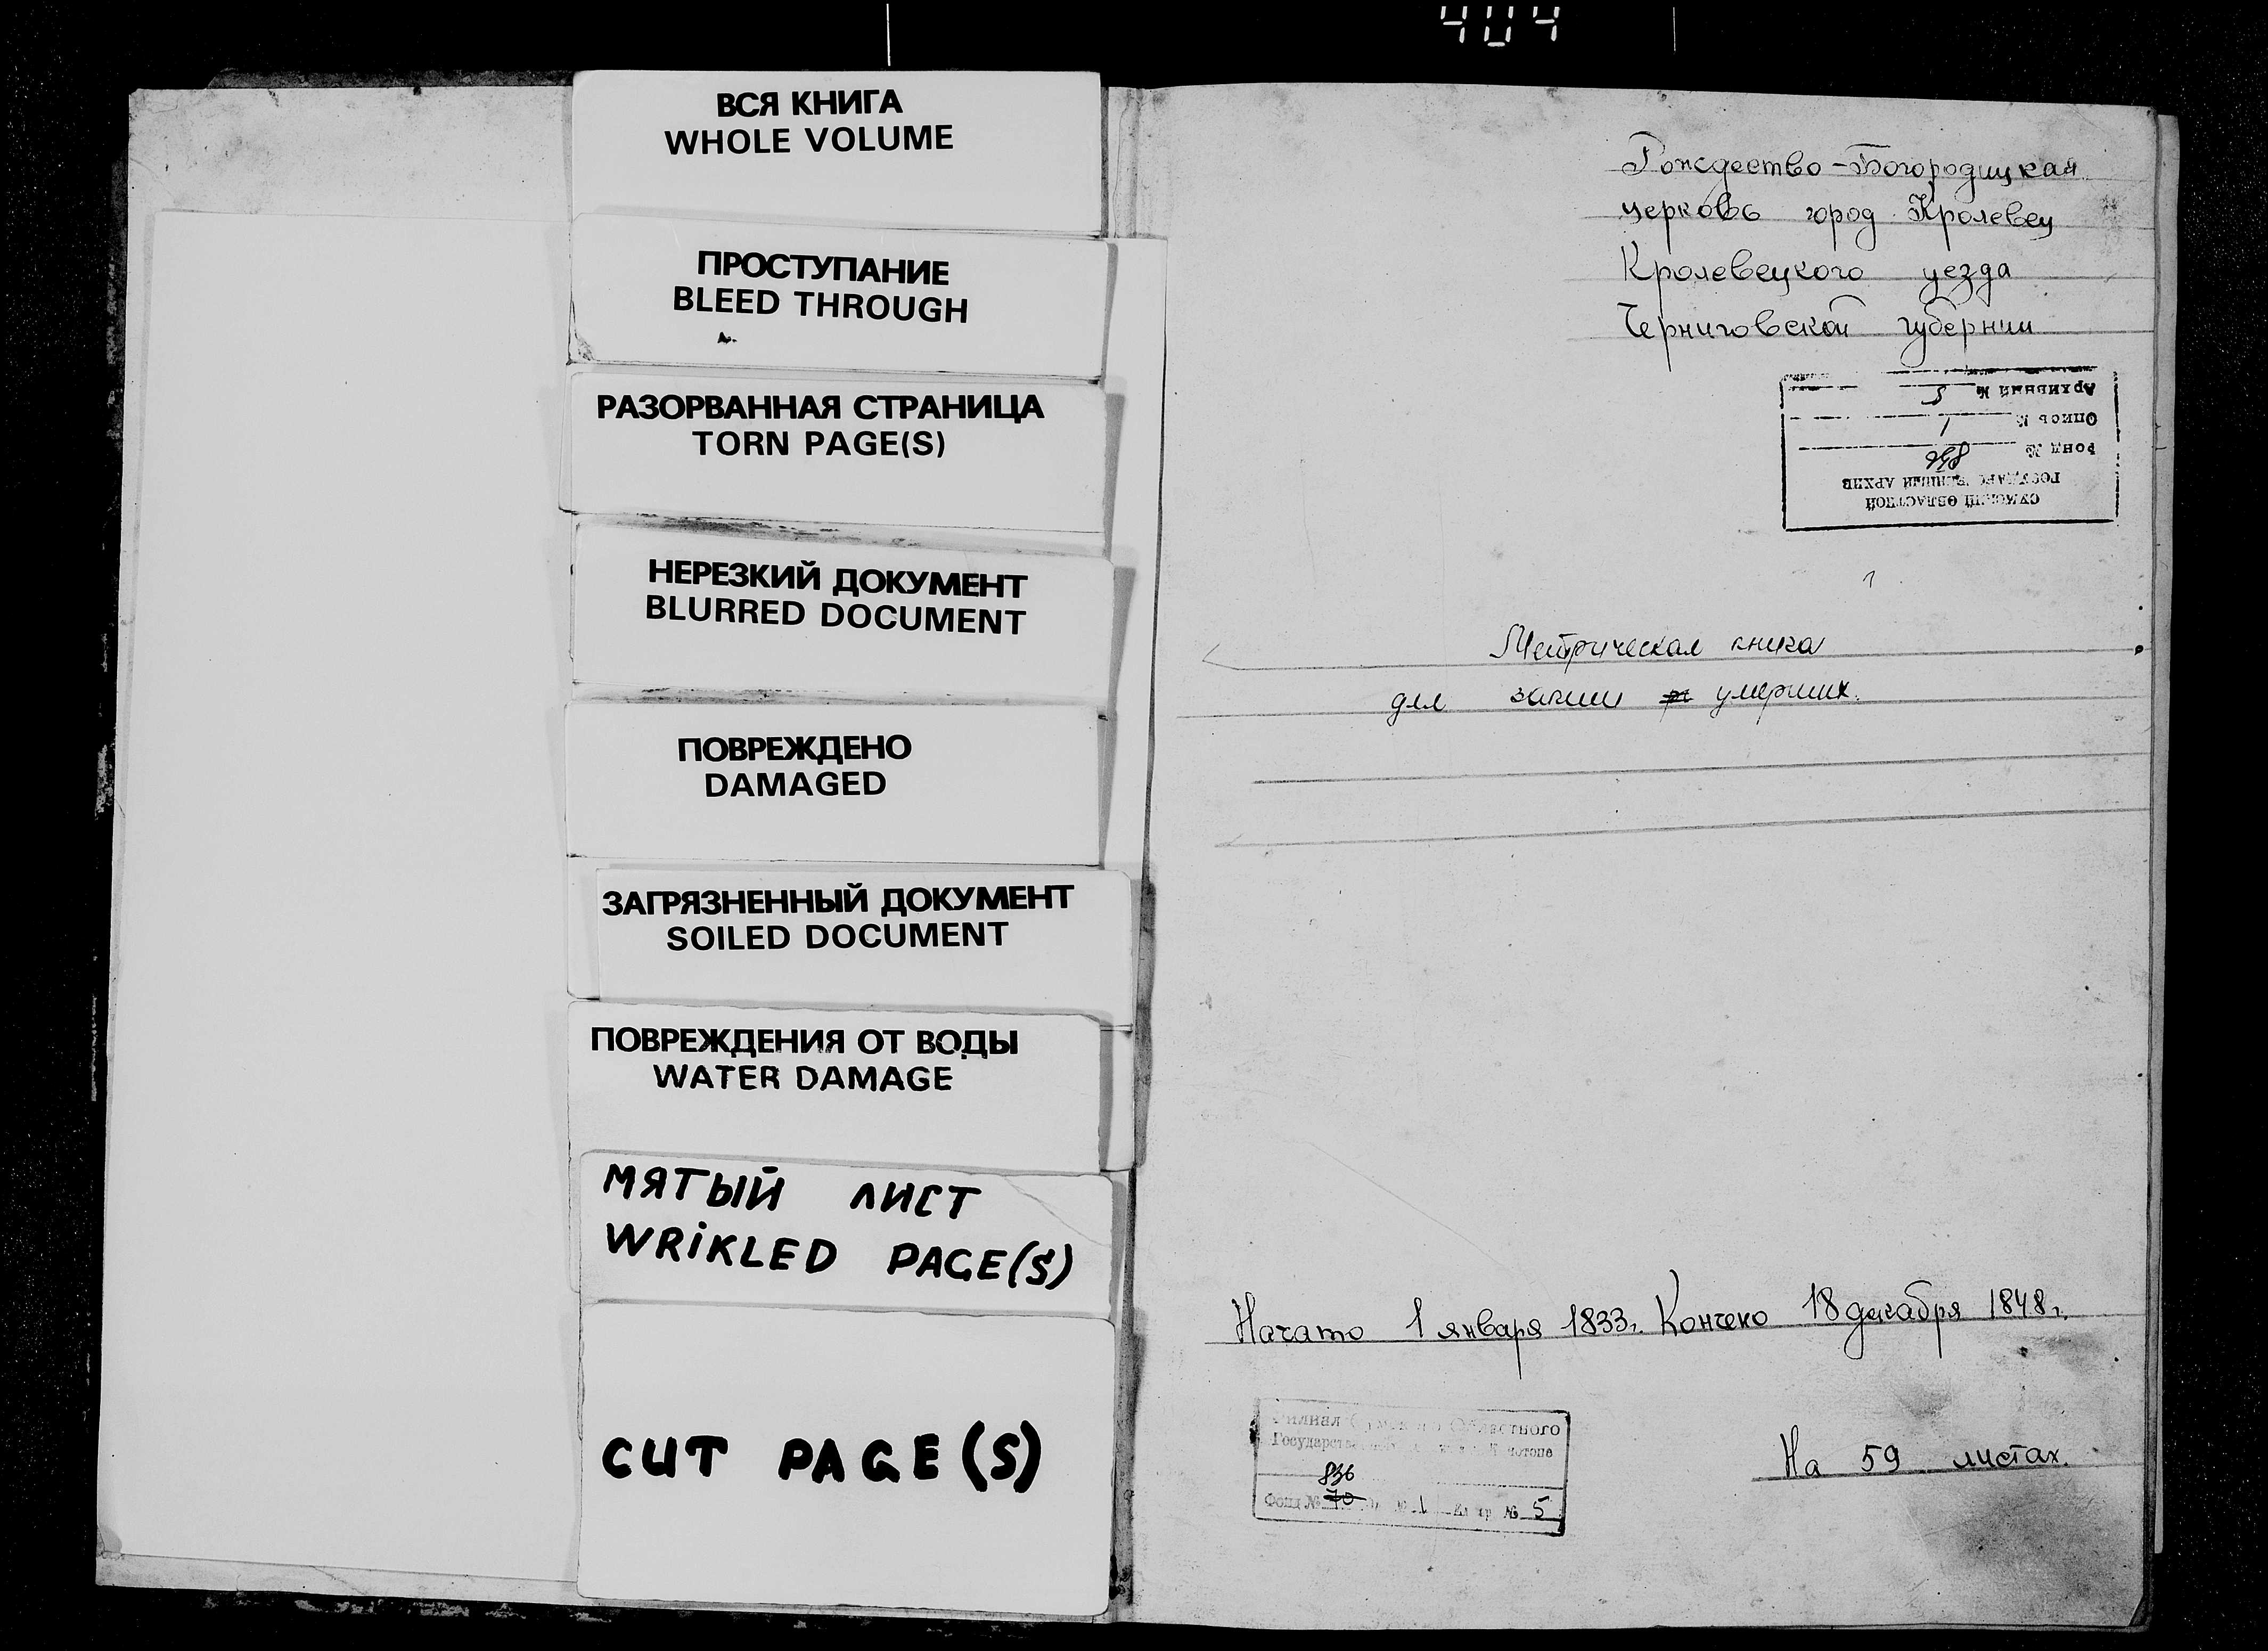 404
ВСЯ КНИГА
WHOLE VOLUME
ПРОСТУПАНИЕ
BLEED THROUGH
РАЗОРВАННАЯ СТРАНИЦА
TORN PAGE(S)
НЕРЕЗКИЙ ДОКУМЕНТ
BLURRED DOCUMENT
ПОВРЕЖДЕНО
DAMAGED
ЗАГРЯЗНЕННЫЙ ДОКУМЕНТ
SOILED DOCUMENT
ПОВРЕЖДЕНИЯ ОТ ВОДЫ
WATER DAMAGE
МЯТЫЙ ЛИСТ
WRIKLED PAGE(S)
CUT PAGE(S)
Рождество-Богородицкая
церковь город Кролевец
Кролевецкого уезда
Черниговской губернии
СУМСКИЙ ОБЛАСТНОЙ
ГОСУДАРСТВЕННЫЙ АРХИВ
Фонд № 836
Опись № 1
Архивный № 5
Метрическая книга
для записи умерших.
Начато 1 января 1833г. Кончено 18 декабря 1848г.
Филиал Сумского Областного
Государственного
836
Фонд № 70 1 Ед. хр № 5
На 59 листах.